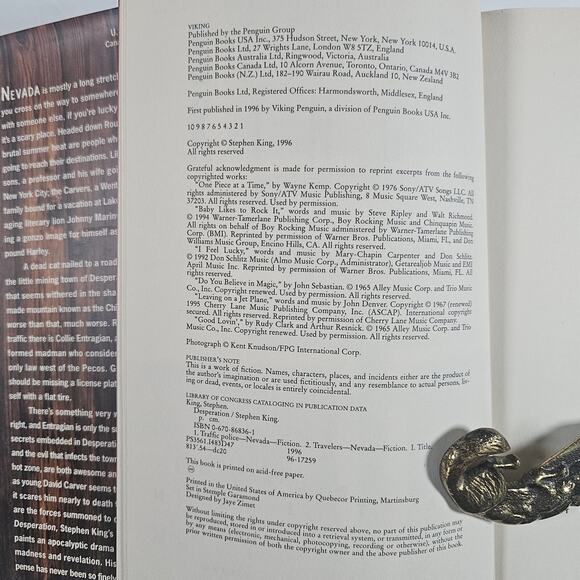 U.
Can
NEVADA is mostly a long stretch
you cross on the way to somewhere
with someone else, if you're lucky
it's a scary place. Headed down Rou
brutal summer heat are people wh
going to reach their destinations. Li
sons, a professor and his wife go
New York City; the Carvers, a Went
family bound for a vacation at Lake
aging literary lion Johnny Marin
ing a gonzo image for himself as
pound Harley.
A dead cat nailed to a road
the little mining town of Desper
that seems withered in the sha
made mountain known as the Ch
worse than that, much worse. R
traffic there is Collie Entragian,
formed madman who consider
only law west of the Pecos. G
should be missing a license plat
self with a flat tire.
There's something very w
right, and Entragian is only the su
secrets embedded in Desperati
and the evil that infects the town
hot zone, are both awesome an
as young David Carver seems t
it scares him nearly to death
are the forces summoned to c
Desperation, Stephen King's
paints an apocalyptic drama
madness and revelation. His
pense has never been so finely
VIKING
Published by the Penguin Group
Penguin Books USA Inc., 375 Hudson Street, New York, New York 10014, U.S.A.
Penguin Books Ltd, 27 Wrights Lane, London W8 5TZ, England
Penguin Books Australia Ltd, Ringwood, Victoria, Australia
Penguin Books Canada Ltd, 10 Alcorn Avenue, Toronto, Ontario, Canada M4V 3B2
Penguin Books (N.Z.) Ltd, 182–190 Wairau Road, Auckland 10, New Zealand
Penguin Books Ltd, Registered Offices: Harmondsworth, Middlesex, England
First published in 1996 by Viking Penguin, a division of Penguin Books USA Inc.
10 9 8 7 6 5 4 3 2 1
Copyright © Stephen King, 1996
All rights reserved
Grateful acknowledgment is made for permission to reprint excerpts from the following
copyrighted works:
"One Piece at a Time," by Wayne Kemp. Copyright © 1976 Sony/ATV Songs LLC. All
rights administered by Sony/ATV Music Publishing, 8 Music Square West, Nashville, TN
37203. All rights reserved. Used by permission.
"Baby Likes to Rock It," words and music by Steve Ripley and Walt Richmond.
© 1994 Warner-Tamerlane Publishing Corp., Boy Rocking Music and Chinquapin Music.
All rights on behalf of Boy Rocking Music administered by Warner-Tamerlane Publishing
Corp. (BMI). Reprinted by permission of Warner Bros. Publications, Miami, FL, and Don
Williams Music Group, Encino Hills, CA. All rights reserved.
"I Feel Lucky," words and music by Mary-Chapin Carpenter and Don Schlitz.
© 1992 Don Schlitz Music (Almo Music Corp., Administrator), Getarealjob Music and EMI
April Music Inc. Reprinted by permission of Warner Bros. Publications, Miami, FL. All
rights reserved.
"Do You Believe in Magic," by John Sebastian. © 1965 Alley Music Corp. and Trio Music
Co., Inc. Copyright renewed. Used by permission. All rights reserved.
"Leaving on a Jet Plane," words and music by John Denver. Copyright © 1967 (renewed)
1995 Cherry Lane Music Publishing Company, Inc. (ASCAP). International copyright
secured. All rights reserved. Reprinted by permission of Cherry Lane Music Company.
"Good Lovin'," by Rudy Clark and Arthur Resnick. © 1965 Alley Music Corp. and Trio
Music Co., Inc. Copyright renewed. Used by permission. All rights reserved.
Photograph © Kent Knudson/FPG International Corp.
PUBLISHER'S NOTE
This is a work of fiction. Names, characters, places, and incidents either are the product of
the author's imagination or are used fictitiously, and any resemblance to actual persons, liv-
ing or dead, events, or locales is entirely coincidental.
LIBRARY OF CONGRESS CATALOGING IN PUBLICATION DATA
King, Stephen.
Desperation / Stephen King.
p. cm.
ISBN 0-670-86836-1
1. Traffic police—Nevada—Fiction. 2. Travelers—Nevada—Fiction. 1. Title.
PS3561.I483D47 1996
813'.54—dc20 96-17259
This book is printed on acid-free paper.
Printed in the United States of America by Quebecor Printing, Martinsburg
Set in Stemple Garamond
Designed by Jaye Zimet
Without limiting the rights under copyright reserved above, no part of this publication may
be reproduced, stored in or introduced into a retrieval system, or transmitted, in any form or
by any means (electronic, mechanical, photocopying, recording or otherwise), without the
prior written permission of both the copyright owner and the above publisher of this book.